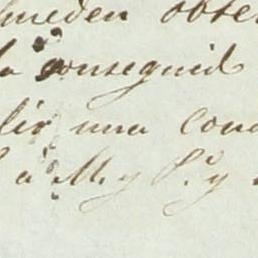 pueden obte
a conseguid
lir una cond
a M. y P. y